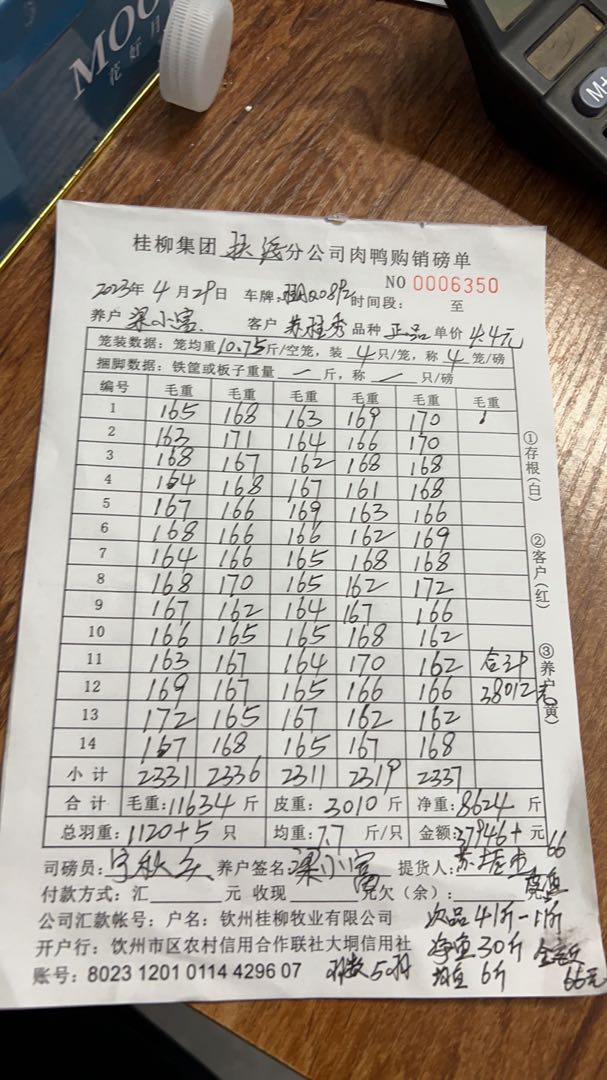 MOO
花好月
M+
桂柳集团 分公司肉鸭购销磅单
NO 0006350
2023年 4月29日 车牌: 时间段: 至
养户 梁小富 客户 苏桂秀 品种 正品 单价 4.4元
笼装数据: 笼均重10.75斤/空笼, 装 4 只/笼, 称 4 笼/磅
捆脚数据: 铁筐或板子重量 — 斤, 称 — 只/磅
编号 毛重 毛重 毛重 毛重 毛重 毛重
1 165 168 163 169 170
2 163 171 164 166 170
3 168 167 162 168 168
4 164 168 167 161 168
5 167 166 169 163 166
6 168 166 166 162 169
7 164 166 165 168 168
8 168 170 165 162 172
9 167 162 164 167 166
10 166 165 165 168 162
11 163 167 164 170 162 合计
12 169 167 165 166 166 38012
13 172 165 167 162 162
14 167 168 165 167 168
小计 2331 2336 2311 2319 2337
合计 毛重: 11634 斤 皮重: 3010 斤 净重: 8624 斤
总羽重: 1120+5 只 均重: 7.7 斤/只 金额: 37946+ 元 66
司磅员: 养户签名: 梁小富 提货人:
付款方式: 汇 元 收现 元欠(余): 元
公司汇款帐号: 户名: 钦州桂柳牧业有限公司 次品 41斤-11斤
开户行: 钦州市区农村信用合作联社大垌信用社 净重 30斤
账号: 8023 1201 0114 4296 07 羽数 5羽 均重 6斤 66元
①存根(白)
②客户(红)
③养户(黄)